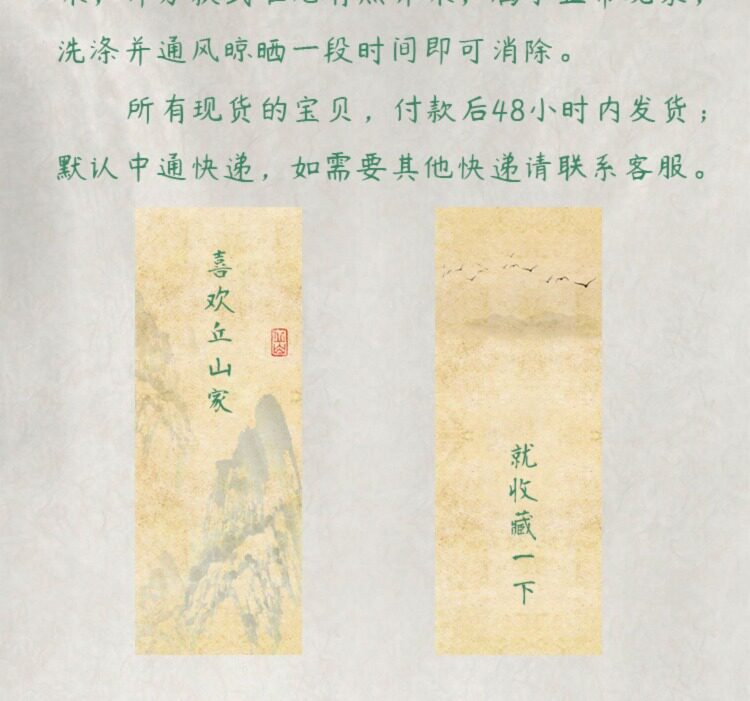 洗涤并通风晾晒一段时间即可消除。
所有现货的宝贝，付款后48小时内发货；
默认中通快递，如需要其他快递请联系客服。
喜欢丘山家
就收藏一下